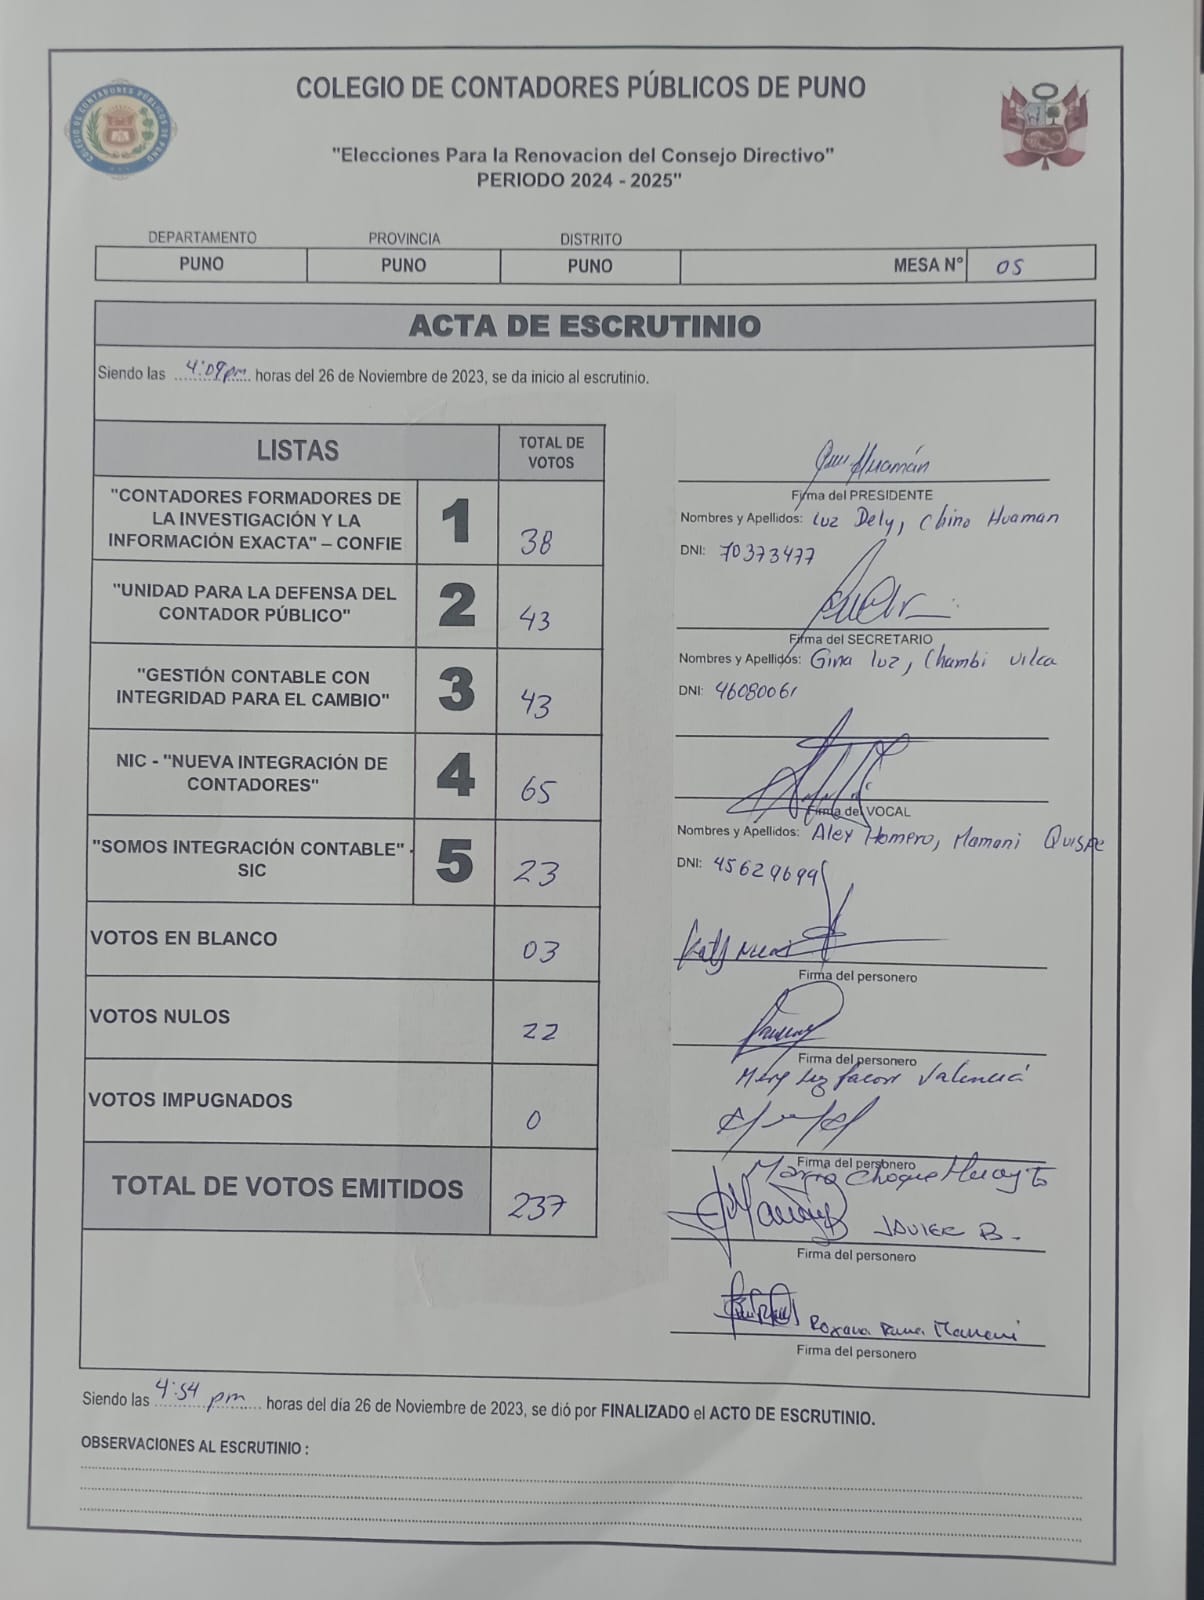 COLEGIO DE CONTADORES PÚBLICOS DE PUNO
COLEGIO DE CONTADORES PÚBLICOS DE PUNO
"Elecciones Para la Renovacion del Consejo Directivo"
PERIODO 2024 - 2025"
DEPARTAMENTO PROVINCIA DISTRITO
PUNO PUNO PUNO MESA N° 05
ACTA DE ESCRUTINIO
Siendo las 4:09pm horas del 26 de Noviembre de 2023, se da inicio al escrutinio.
LISTAS
TOTAL DE
VOTOS
"CONTADORES FORMADORES DE
LA INVESTIGACIÓN Y LA
INFORMACIÓN EXACTA" – CONFIE
1
38
"UNIDAD PARA LA DEFENSA DEL
CONTADOR PÚBLICO"
2
43
"GESTIÓN CONTABLE CON
INTEGRIDAD PARA EL CAMBIO"
3
43
NIC - "NUEVA INTEGRACIÓN DE
CONTADORES"
4
65
"SOMOS INTEGRACIÓN CONTABLE" -
SIC
5
23
VOTOS EN BLANCO 03
VOTOS NULOS 22
VOTOS IMPUGNADOS 0
TOTAL DE VOTOS EMITIDOS 237
Huamán
Firma del PRESIDENTE
Nombres y Apellidos: Luz Dely, Chino Huaman
DNI: 70373477
Firma del SECRETARIO
Nombres y Apellidos: Gina luz, Chambi Vilca
DNI: 46080061
Firma del VOCAL
Nombres y Apellidos: Alex Homero, Mamani Quispe
DNI: 45629699
Firma del personero
Firma del personero
Valencia
Firma del personero
Choque
JAVIER B.
Firma del personero
Roxana Mamani
Firma del personero
Siendo las 4:54 pm horas del día 26 de Noviembre de 2023, se dió por FINALIZADO el ACTO DE ESCRUTINIO.
OBSERVACIONES AL ESCRUTINIO :